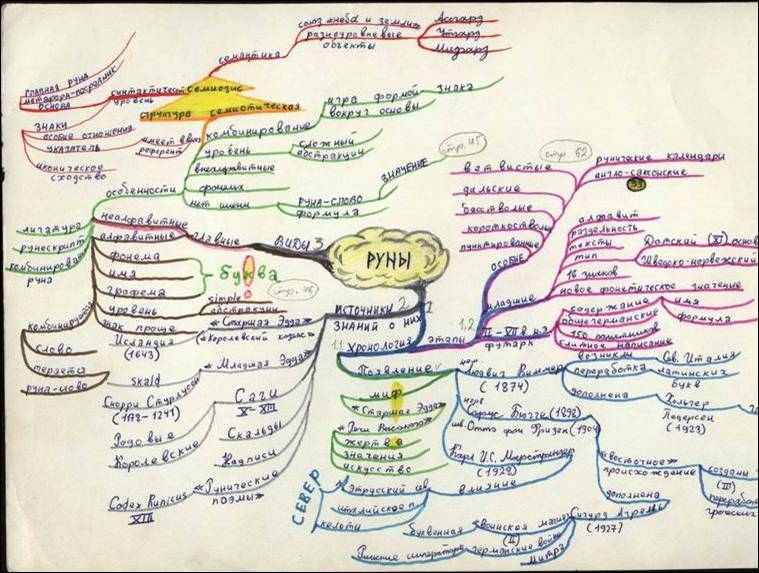 РУНЫ
ВИДЫ 3
главные
неалфавитные
алфавитные
лигатура
рунескрипт
комбинирован
руна
фонема
имя
графема
уровень
буква
simple
абстракции
знак проще
комбинируются
слово
теряется
руна-слово
особенности
структура семиотическая
семиозис
семантика
союз неба и земли
разноуровневые
объекты
Асгард
Утгард
Мидгард
синтактический
уровень
главная руна
метафора-посредник
основа
знаки
особые отношения
указатель
иконическое
сходство
имеет ввиду
референт
комбинирование
игра формой
вокруг основы
знака
уровень
сложный
абстракции
внеалфавитные
нет имени
РУНА-СЛОВО
формула
ЗНАЧЕНИЕ
стр. 45
стр. 52
стр. 46
ИСТОЧНИКИ 2
ЗНАНИЙ о НИХ
«Старшая Эдда»
«Королевский кодекс»
Исландия
(1643)
«Младшая Эдда»
skald
Снорри Стурлусон
(1178-1241)
Саги
X-XIII
Родовые
Королевские
Скальды
Надписи
«Рунические
поэмы»
Codex Runicus
XIII
1
1.1 ХРОНОЛОГИЯ
1.2
этапы
Появление
миф
«Старшая Эдда»
«Речи Высокого»
жертва
значения
искусство
СЕВЕР
этрусский
италийское
кельты
влияние
Людвиг Виммер
(1874)
возникли
Сев. Италия
переработка
латинских
букв
дополнена
Хольгер
Педерсен
(1923)
норв.
Софус Бугге (1892)
шв. Отто фон Фризен (1904)
«восточное»
происхождение
созданы
(III)
дополнена
Карл И.С. Марстрандер
(1928)
Сигурд Агрелль
(1927)
буквенная
воинская магия
(II)
Римские императоры
германские войны
Митра
особые
ветвистые
дальские
бесстволые
коротковетвые
пунктированные
младшие
рунические календари
англо-саксонские
33
алфавит
раздельность
тексты
тип
Датский (XI) основ
Шведско-норвежский
16 знаков
новое фонетическое значение
содержание
имя
формула
общегерманские
150 памятников
слитное написание
футарк